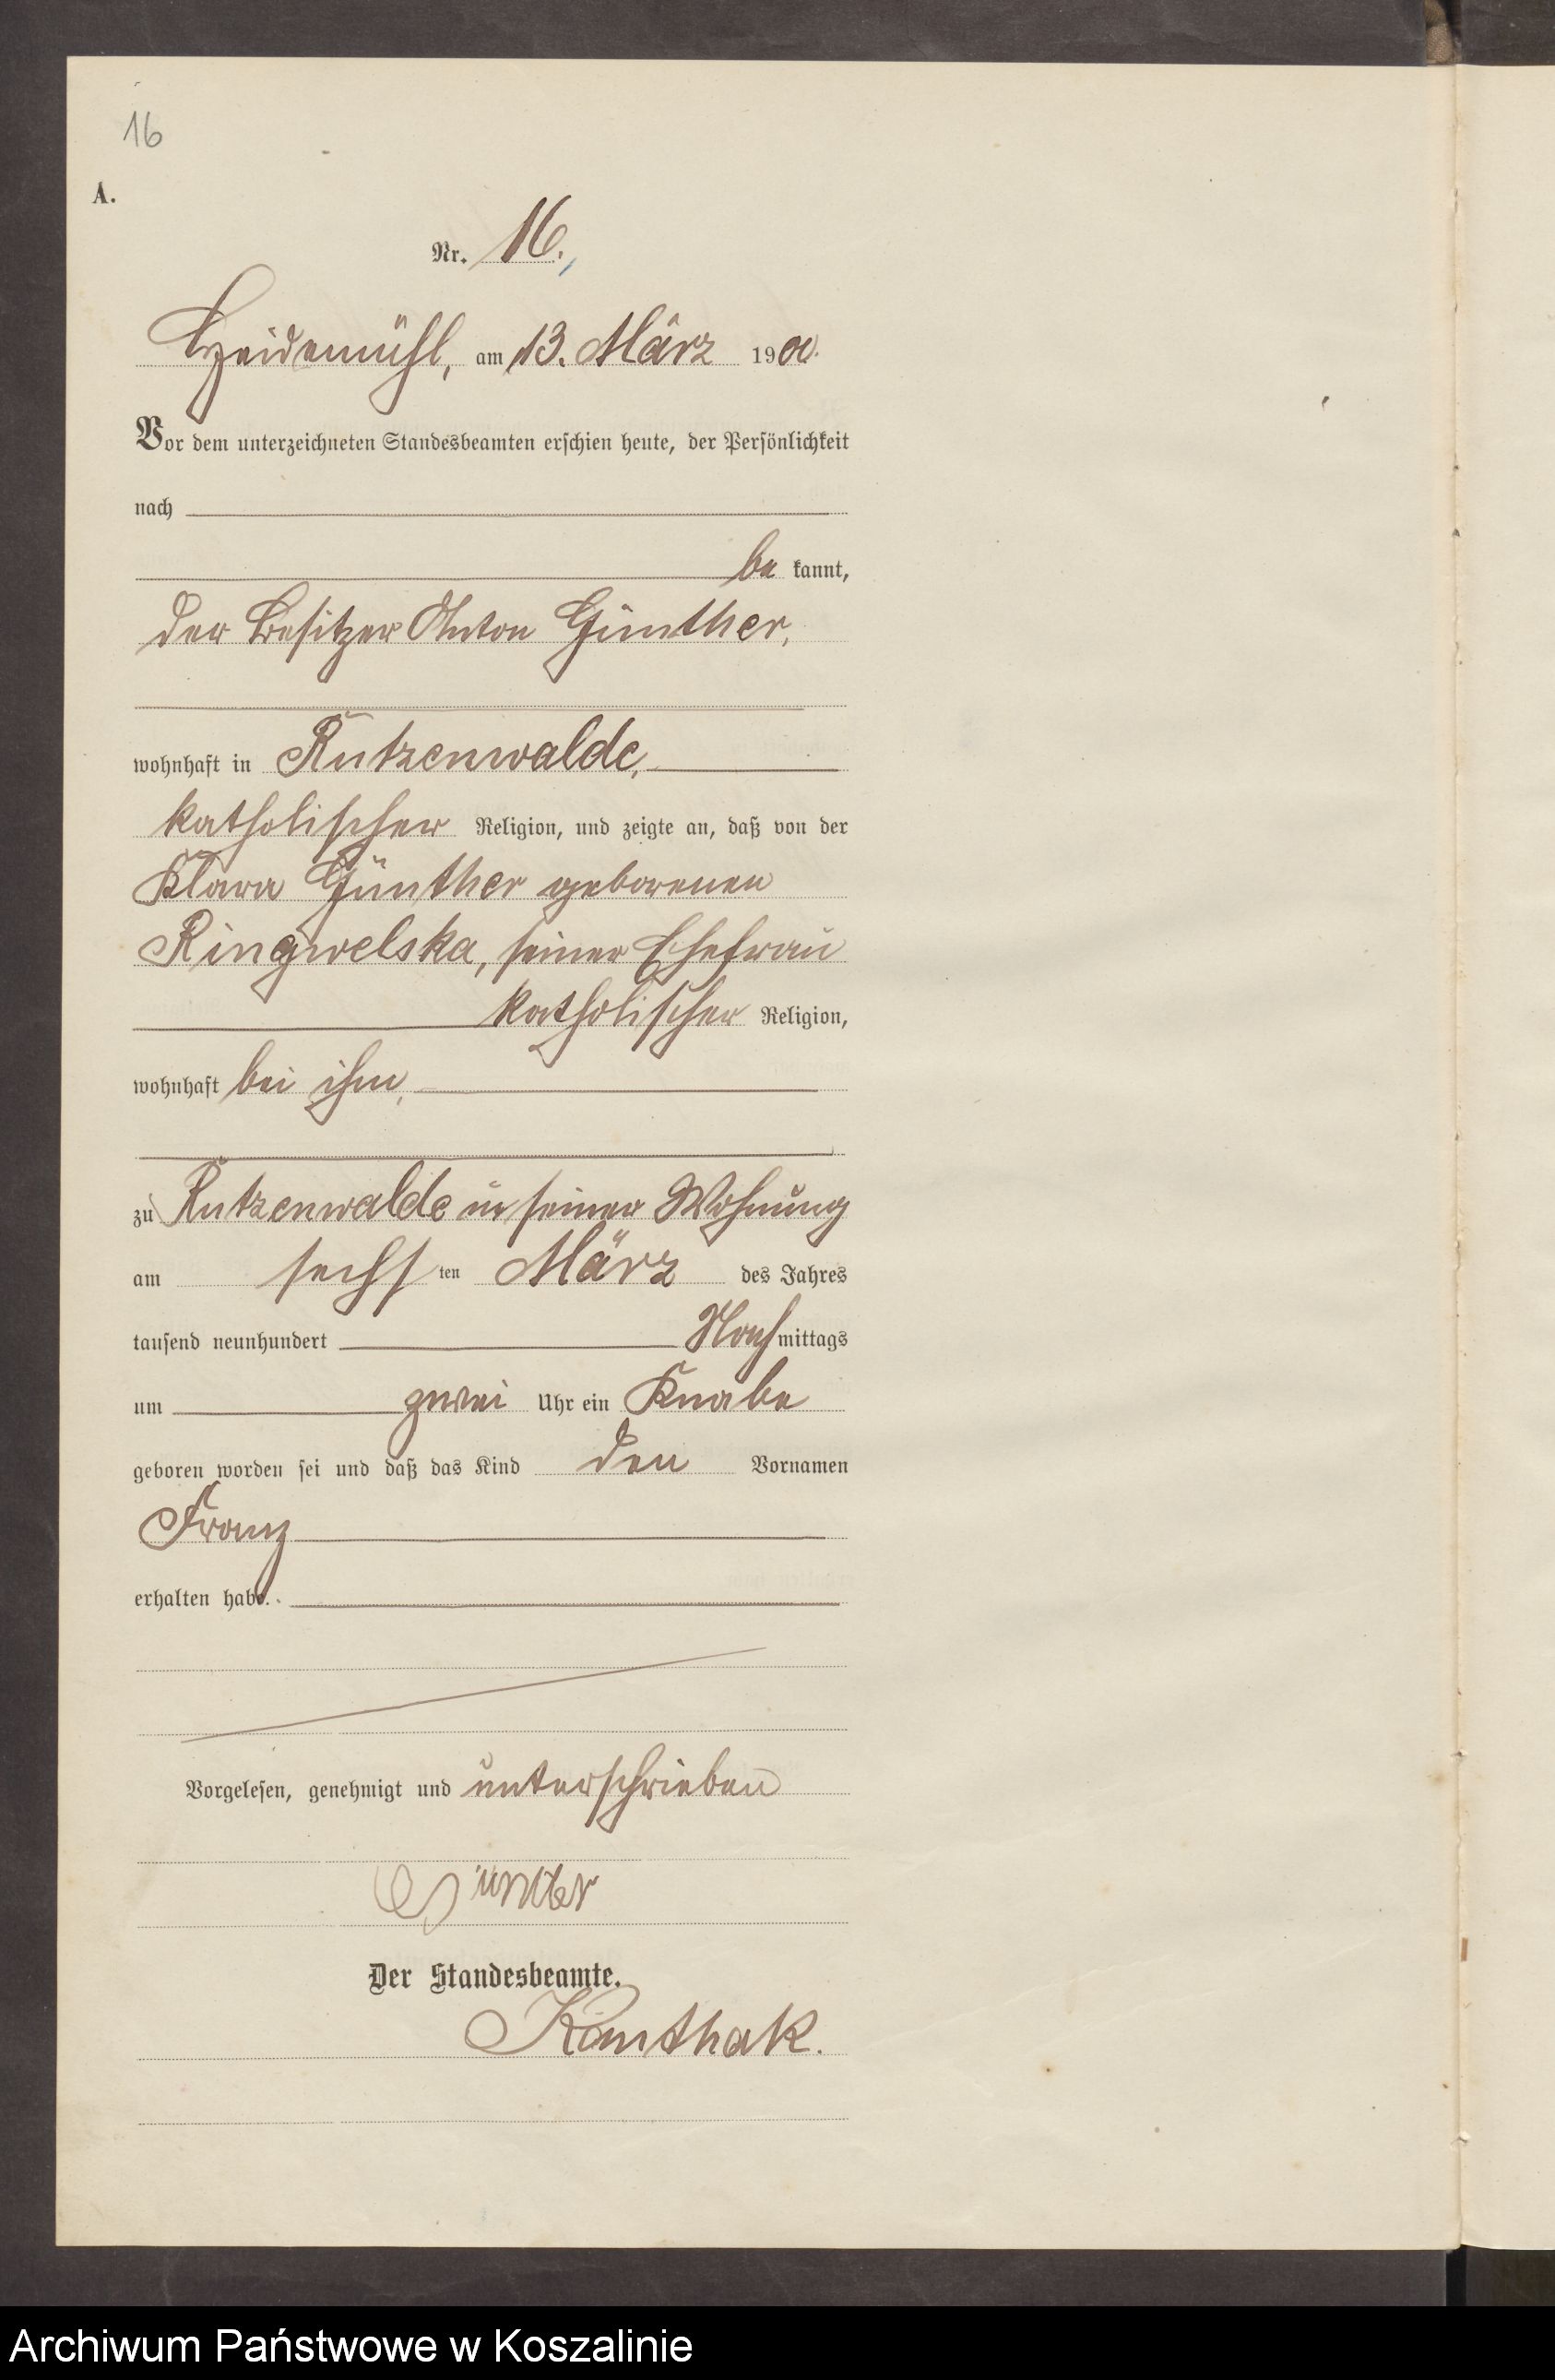 16
A.
Nr. 16.
Heidemühl, am 13. März 1900.
Vor dem unterzeichneten Standesbeamten erschien heute, der Persönlichkeit
nach
be kannt,
der Besitzer Anton Günther,
wohnhaft in Rutzenwalde,
katholischer Religion, und zeigte an, daß von der
Klara Günther geborenen
Ringwelska, seiner Ehefrau
katholischer Religion,
wohnhaft bei ihm,
zu Rutzenwalde in seiner Wohnung
am sechs ten März des Jahres
tausend neunhundert Nach mittags
um zwei Uhr ein Knabe
geboren worden sei und daß das Kind den Vornamen
Franz
erhalten habe.
Vorgelesen, genehmigt und unterschrieben
Günter
Der Standesbeamte.
Kanthak.
Archiwum Państwowe w Koszalinie